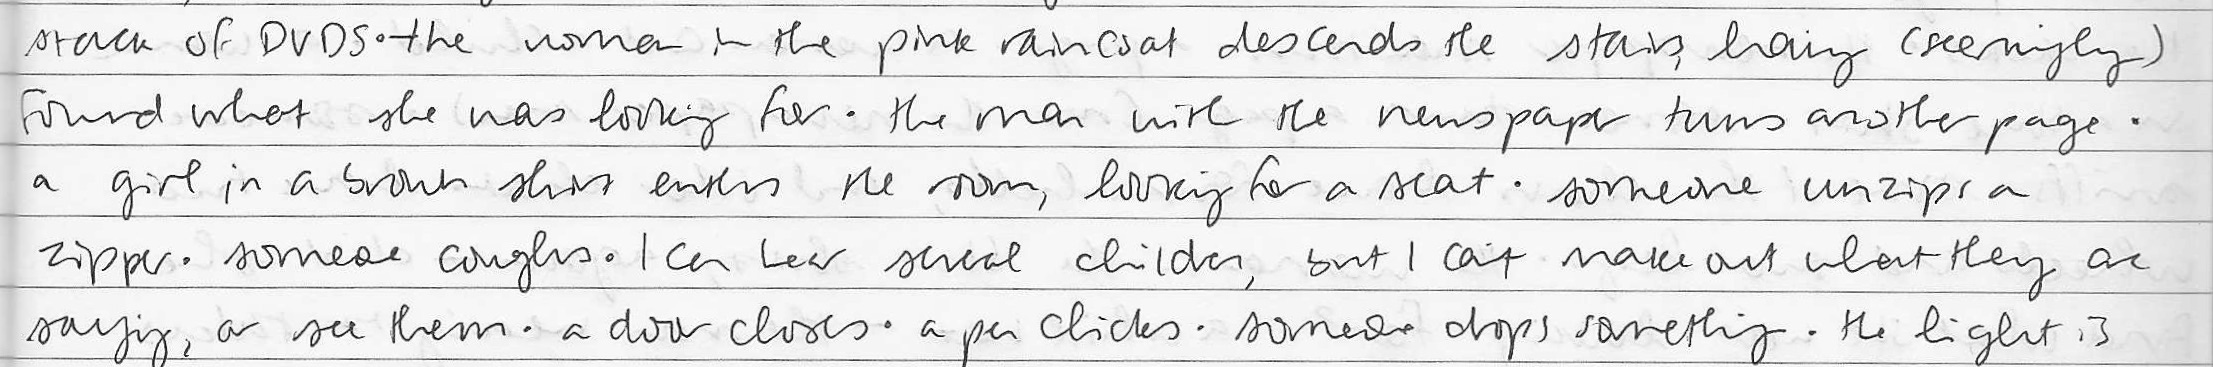 stack of DVDS. the woman in the pink raincoat descends the stairs, having (seemingly)
found what she was looking for. the man with the newspaper turns another page.
a girl in a brown shirt enters the room, looking for a seat. someone unzips a
zipper. someone coughs. I can hear several children, but I can't make out what they are
saying, or see them. a door closes. a pen clicks. someone drops something. the light is